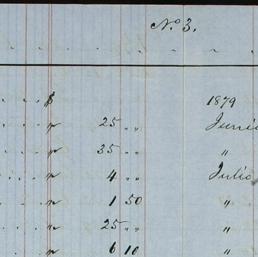 No. 3.
$ 1879
" 25 " Junio
" 35 " "
" 4 " Julio
" 1 50 "
" 25 " "
" 6 10 "